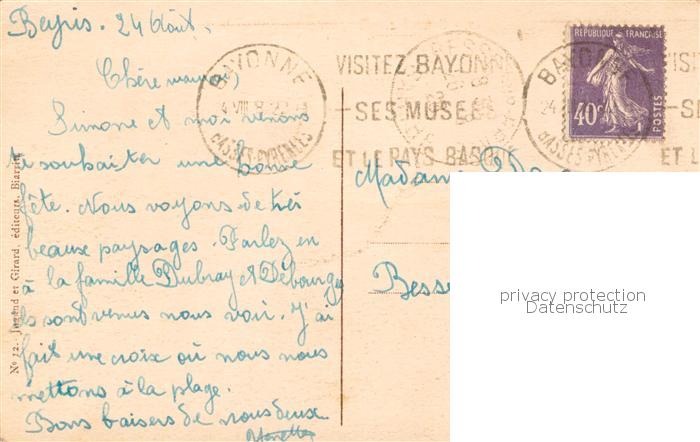 Beyris. 24 Août.
Chère maman,
Simone et moi venons
te souhaiter une bonne
fête. Nous voyons de très
beaux paysages. Parlez en
à la famille Dubray et
ils sont venus nous voir. J'ai
fait une croix où nous nous
mettons à la plage.
Bons baisers de nous deux
Nº 12. et Girard, éditeurs, Biarritz
BAYONNE
BASSES-PYRENEES
VISITEZ BAYONNE
SES MUSEES
ET LE PAYS BASQUE
BAYONNE
BASSES-PYRENEES
REPUBLIQUE FRANÇAISE
40c
POSTES
VISI
SE
ET L
Madame
Besse
privacy protection
Datenschutz